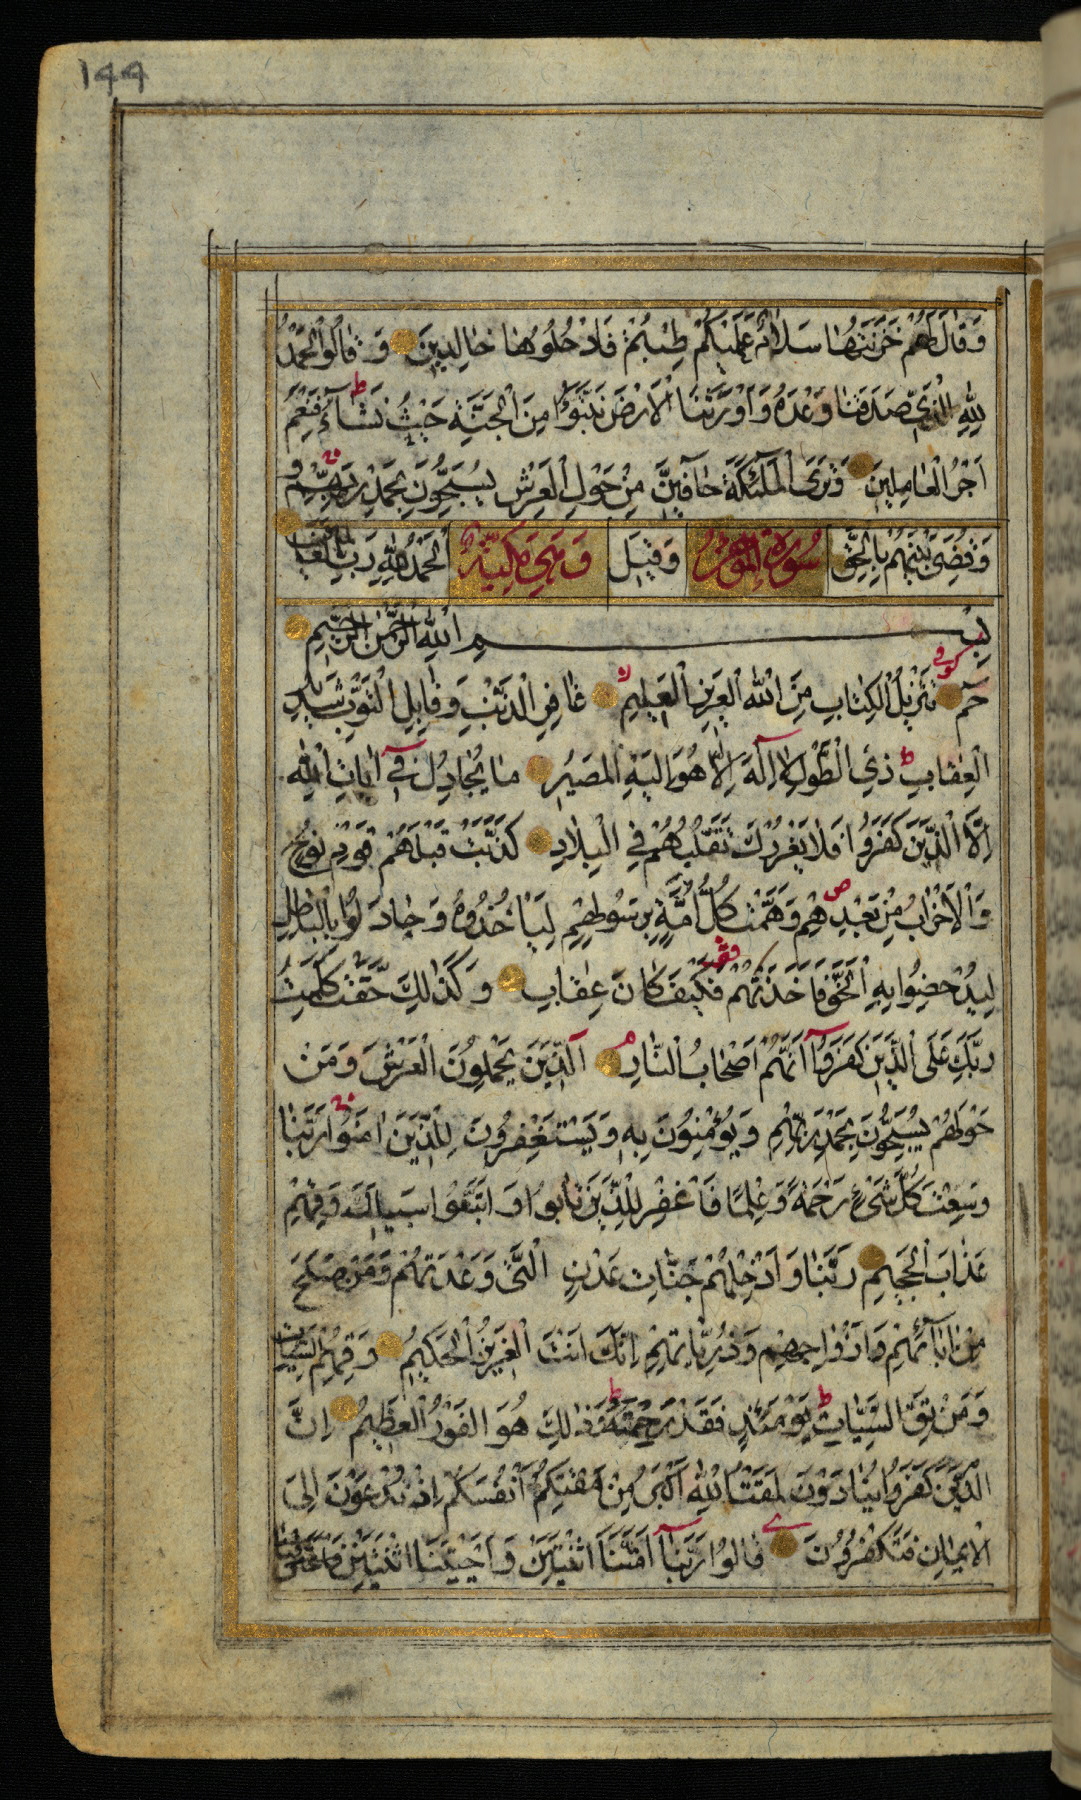 144
وَقَالَ لَهُمْ خَزَنَتُهَا سَلَامٌ عَلَيْكُمْ طِبْتُمْ فَادْخُلُوهَا خَالِدِينَ وَقَالُوا الْحَمْدُ
لِلَّهِ الَّذِي صَدَقَنَا وَعْدَهُ وَأَوْرَثَنَا الْأَرْضَ نَتَبَوَّأُ مِنَ الْجَنَّةِ حَيْثُ نَشَاءُ ط فَنِعْمَ
أَجْرُ الْعَامِلِينَ وَتَرَى الْمَلَٰئِكَةَ حَافِّينَ مِنْ حَوْلِ الْعَرْشِ يُسَبِّحُونَ بِحَمْدِ رَبِّهِمْ
وَقُضِيَ بَيْنَهُمْ بِالْحَقِّ سُورَةُ الْمُؤْمِنُ وَقِيلَ وَهِيَ مَكِّيَّةٌ الْحَمْدُ لِلَّهِ رَبِّ الْعَالَمِينَ
بِسْمِ اللَّهِ الرَّحْمَٰنِ الرَّحِيمِ
حٰم كوفي تَنْزِيلُ الْكِتَابِ مِنَ اللَّهِ الْعَزِيزِ الْعَلِيمِ لا غَافِرِ الذَّنْبِ وَقَابِلِ التَّوْبِ شَدِيدِ
الْعِقَابِ ط ذِي الطَّوْلِ لَا إِلَٰهَ إِلَّا هُوَ إِلَيْهِ الْمَصِيرُ مَا يُجَادِلُ فِي آيَاتِ اللَّهِ
إِلَّا الَّذِينَ كَفَرُوا فَلَا يَغْرُرْكَ تَقَلُّبُهُمْ فِي الْبِلَادِ كَذَّبَتْ قَبْلَهُمْ قَوْمُ نُوحٍ
وَالْأَحْزَابُ مِنْ بَعْدِهِمْ ص وَهَمَّتْ كُلُّ أُمَّةٍ بِرَسُولِهِمْ لِيَأْخُذُوهُ وَجَادَلُوا بِالْبَاطِلِ
لِيُدْحِضُوا بِهِ الْحَقَّ فَأَخَذْتُهُمْ قف فَكَيْفَ كَانَ عِقَابِ وَكَذَٰلِكَ حَقَّتْ كَلِمَتُ
رَبِّكَ عَلَى الَّذِينَ كَفَرُوا أَنَّهُمْ أَصْحَابُ النَّارِ م الَّذِينَ يَحْمِلُونَ الْعَرْشَ وَمَنْ
حَوْلَهُمْ يُسَبِّحُونَ بِحَمْدِ رَبِّهِمْ وَيُؤْمِنُونَ بِهِ وَيَسْتَغْفِرُونَ لِلَّذِينَ آمَنُوا رَبَّنَا
وَسِعْتَ كُلَّ شَيْءٍ رَحْمَةً وَعِلْمًا فَاغْفِرْ لِلَّذِينَ تَابُوا وَاتَّبَعُوا سَبِيلَكَ وَقِهِمْ
عَذَابَ الْجَحِيمِ رَبَّنَا وَأَدْخِلْهُمْ جَنَّاتِ عَدْنٍ الَّتِي وَعَدْتَهُمْ وَمَنْ صَلَحَ
مِنْ آبَائِهِمْ وَأَزْوَاجِهِمْ وَذُرِّيَّاتِهِمْ إِنَّكَ أَنْتَ الْعَزِيزُ الْحَكِيمُ وَقِهِمُ السَّيِّئَاتِ
وَمَنْ تَقِ السَّيِّئَاتِ يَوْمَئِذٍ فَقَدْ رَحِمْتَهُ ط وَذَٰلِكَ هُوَ الْفَوْزُ الْعَظِيمُ إِنَّ
الَّذِينَ كَفَرُوا يُنَادَوْنَ لَمَقْتُ اللَّهِ أَكْبَرُ مِنْ مَقْتِكُمْ أَنْفُسَكُمْ إِذْ تُدْعَوْنَ إِلَى
الْإِيمَانِ فَتَكْفُرُونَ قَالُوا رَبَّنَا أَمَتَّنَا اثْنَتَيْنِ وَأَحْيَيْتَنَا اثْنَتَيْنِ فَاعْتَرَفْنَا